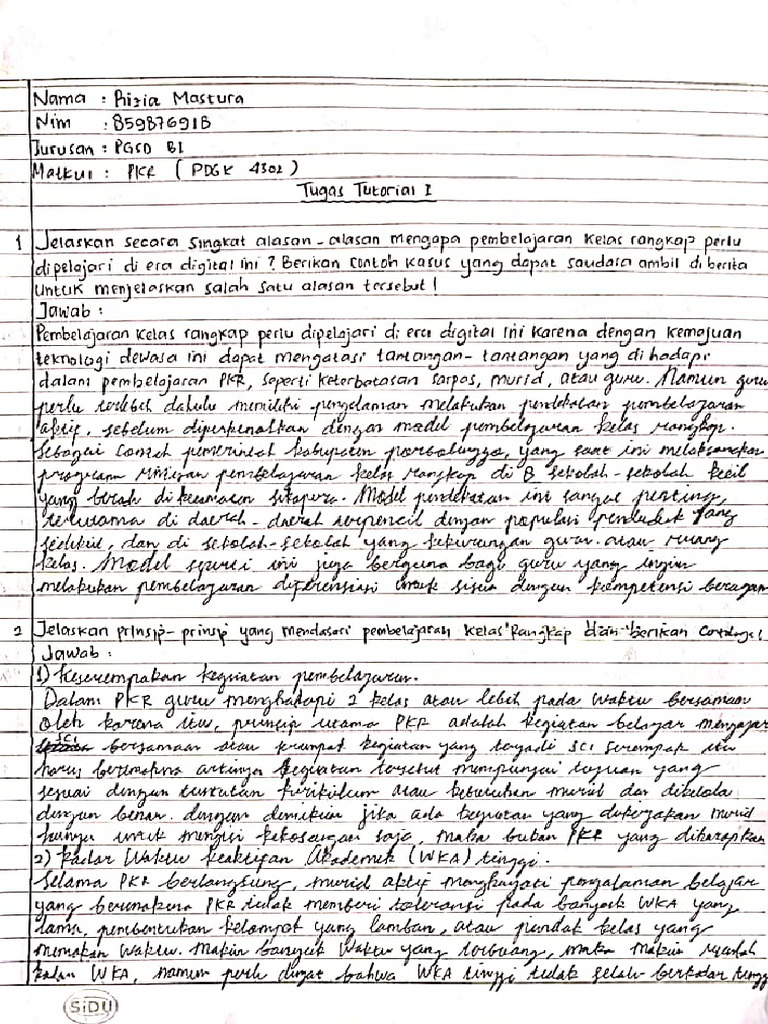 Nama : Rizia Mastura
Nim : 859876918
Jurusan : PGSD BI
Matkul : PKR ( PDGK 4302 )
Tugas Tutorial I
1 Jelaskan secara singkat alasan-alasan mengapa pembelajaran kelas rangkap perlu
dipelajari di era digital ini ? Berikan contoh kasus yang dapat saudara ambil di berita
untuk menjelaskan salah satu alasan tersebut !
Jawab :
Pembelajaran kelas rangkap perlu dipelajari di era digital ini karena dengan kemajuan
teknologi dewasa ini dapat mengatasi tantangan-tantangan yang di hadapi
dalam pembelajaran PKR, seperti keterbatasan sarpas, murid, atau guru. Namun guru
perlu terlebih dahulu memiliki pengalaman melakukan pendekatan pembelajaran
aktif, sebelum diperkenalkan dengan model pembelajaran kelas rangkap.
Sebagai contoh pemerintah kabupaten probolinggo, yang saat ini melaksanakan
program rintisan pembelajaran kelas rangkap di 8 sekolah-sekolah kecil
yang berada di kecamatan sukapura. Model pendekatan ini sangat penting
terutama di daerah-daerah terpencil dengan populasi penduduk yang
sedikit, dan di sekolah-sekolah yang kekurangan guru atau ruang
kelas. Model ini juga berguna bagi guru yang ingin
melakukan pembelajaran diferensiasi untuk siswa dengan kompetensi beragam
2 Jelaskan prinsip-prinsip yang mendasari pembelajaran kelas Rangkap dan berikan contohnya !
Jawab :
1) Keserempakan kegiatan pembelajaran.
Dalam PKR guru menghadapi 2 kelas atau lebih pada waktu bersamaan
oleh karena itu, prinsip utama PKR adalah kegiatan belajar mengajar
sci bersamaan atau serempak kegiatan yang terjadi sci serempak itu
harus bermakna artinya kegiatan tersebut mempunyai tujuan yang
sesuai dengan tuntutan kurikulum atau kebutuhan murid dan dikelola
dengan benar. dengan demikian jika ada kegiatan yang dikerjakan murid
hanya untuk mengisi kekosongan saja, maka bukan PKR yang diharapkan
2) Kadar Waktu Keaktifan Akademik (WKA) tinggi.
Selama PKR berlangsung, murid aktif menghayati pengalaman belajar
yang bermakna PKR tidak memberi toleransi pada banyak WKA yang
lama, pembentukan kelompok yang lamban, atau pindah kelas yang
memakan waktu. Makin banyak waktu yang terbuang, maka makin rendah
kadar WKA, namun perlu diingat bahwa WKA tinggi tidak selalu berkadar tinggi
SiDU